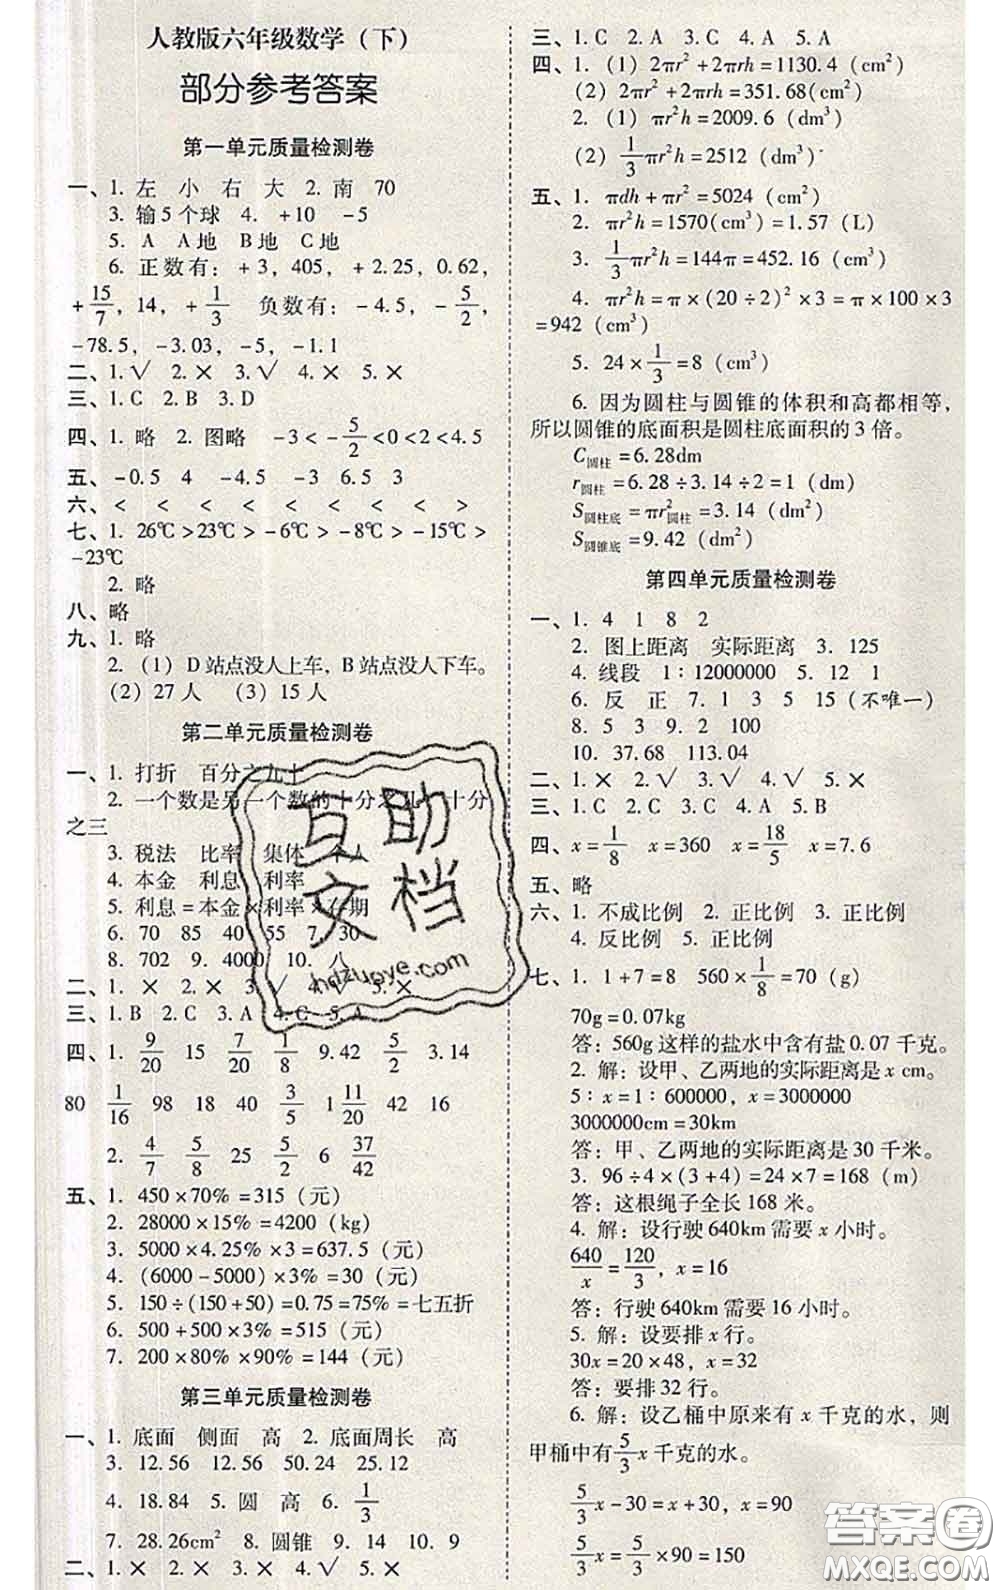 人教版六年级数学（下）
部分参考答案
第一单元质量检测卷
一、1. 左 小 右 大 2. 南 70
3. 输5个球 4. +10 -5
5. A A地 B地 C地
6. 正数有：+3，405，+2.25，0.62，
+15/7，14，+1/3 负数有：-4.5，-5/2，
-78.5，-3.03，-5，-1.1
二、1.√ 2.× 3.√ 4.× 5.×
三、1.C 2.B 3.D
四、1. 略 2. 图略 -3<-5/2<0<2<4.5
五、-0.5 4 -4.5 -3 6.5 3
六、< < < < < < < < <
七、1. 26℃>23℃>-6℃>-8℃>-15℃>
-23℃
2. 略
八、略
九、1. 略
2.（1）D站点没人上车，B站点没人下车。
（2）27人 （3）15人
第二单元质量检测卷
一、1. 打折 百分之九十
2. 一个数是另一个数的十分之几 十分
之三
3. 税法 比率 集体 个人
4. 本金 利息 利率
5. 利息=本金×利率×存期
6. 70 85 40 55 7. 30
8. 702 9. 4000 10. 八
二、1. × 2. × 3. √ 4. × 5. ×
三、1.B 2.C 3.A 4.C 5.A
四、1. 9/20 15 7/20 1/8 9.42 5/2 3.14
80 1/16 98 18 40 3/5 1 11/20 42 16
2. 4/7 5/8 25 5/2 6 37/42
五、1. 450×70%=315（元）
2. 28000×15%=4200（kg）
3. 5000×4.25%×3=637.5（元）
4.（6000-5000）×3%=30（元）
5. 150÷(150+50)=0.75=75%=七五折
6. 500+500×3%=515（元）
7. 200×80%×90%=144（元）
第三单元质量检测卷
一、1. 底面 侧面 高 2. 底面周长 高
3. 12.56 12.56 50.24 25.12
4. 18.84 5. 圆 高 6. 1/3
7. 28.26cm² 8. 圆锥 9. 14 10. 9
二、1.× 2.× 3.× 4.√ 5.×
三、1.C 2.A 3.C 4.A 5.A
四、1.（1）2πr²+2πrh=1130.4（cm²）
（2）2πr²+2πrh=351.68(cm²)
2.（1）πr²h=2009.6（dm³）
（2）1/3πr²h=2512（dm³）
五、1. πdh+πr²=5024（cm²）
2. πr²h=1570(cm³)=1.57（L）
3. 1/3πr²h=144π=452.16（cm³）
4. πr²h=π×(20÷2)²×3=π×100×3
=942（cm³）
5. 24×1/3=8（cm³）
6. 因为圆柱与圆锥的体积和高都相等，
所以圆锥的底面积是圆柱底面积的3倍。
C圆柱=6.28dm
r圆柱=6.28÷3.14÷2=1（dm）
S圆柱底=πr²圆柱=3.14（dm²）
S圆锥底=9.42（dm²）
第四单元质量检测卷
一、1. 4 1 8 2
2. 图上距离 实际距离 3. 125
4. 线段 1∶12000000 5. 12 1
6. 反 正 7. 1 3 5 15（不唯一）
8. 5 3 9. 2 100
10. 37.68 113.04
二、1.× 2.√ 3.√ 4.√ 5.×
三、1.C 2.C 3.C 4.A 5.B
四、x=1/8 x=360 x=18/5 x=7.6
五、略
六、1. 不成比例 2. 正比例 3. 正比例
4. 反比例 5. 正比例
七、1. 1+7=8 560×1/8=70（g）
70g=0.07kg
答：560g这样的盐水中含有盐0.07千克。
2. 解：设甲、乙两地的实际距离是x cm。
5∶x=1∶600000，x=3000000
3000000cm=30km
答：甲、乙两地的实际距离是30千米。
3. 96÷4×(3+4)=24×7=168（m）
答：这根绳子全长168米。
4. 解：设行驶640km需要x小时。
640/x=120/3，x=16
答：行驶640km需要16小时。
5. 解：设要排x行。
30x=20×48，x=32
答：要排32行。
6. 解：设乙桶中原来有x千克的水，则
甲桶中有5/3x千克的水。
5/3x-30=x+30，x=90
5/3x=5/3×90=150
互助
文档
hdzuoye.com
答案圈
MXQE.COM